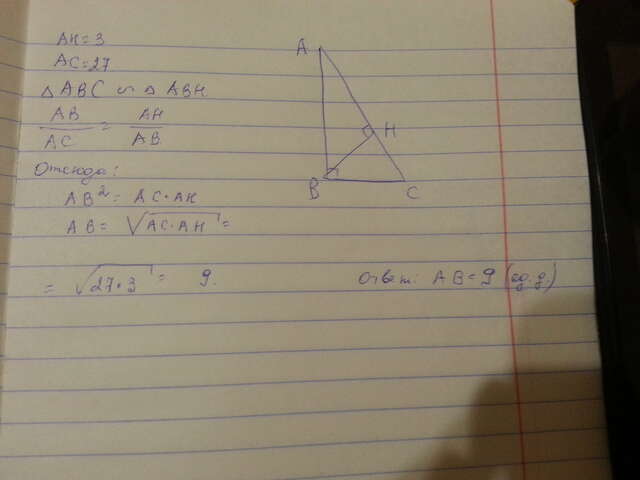 AH = 3
AC = 27
△ABC ∾ △ABH
AB/AC = AH/AB
Отсюда:
AB² = AC·AH
AB = √AC·AH =
= √27·3 = 9.
Ответ: AB = 9 (ед.д)
A
H
B
C